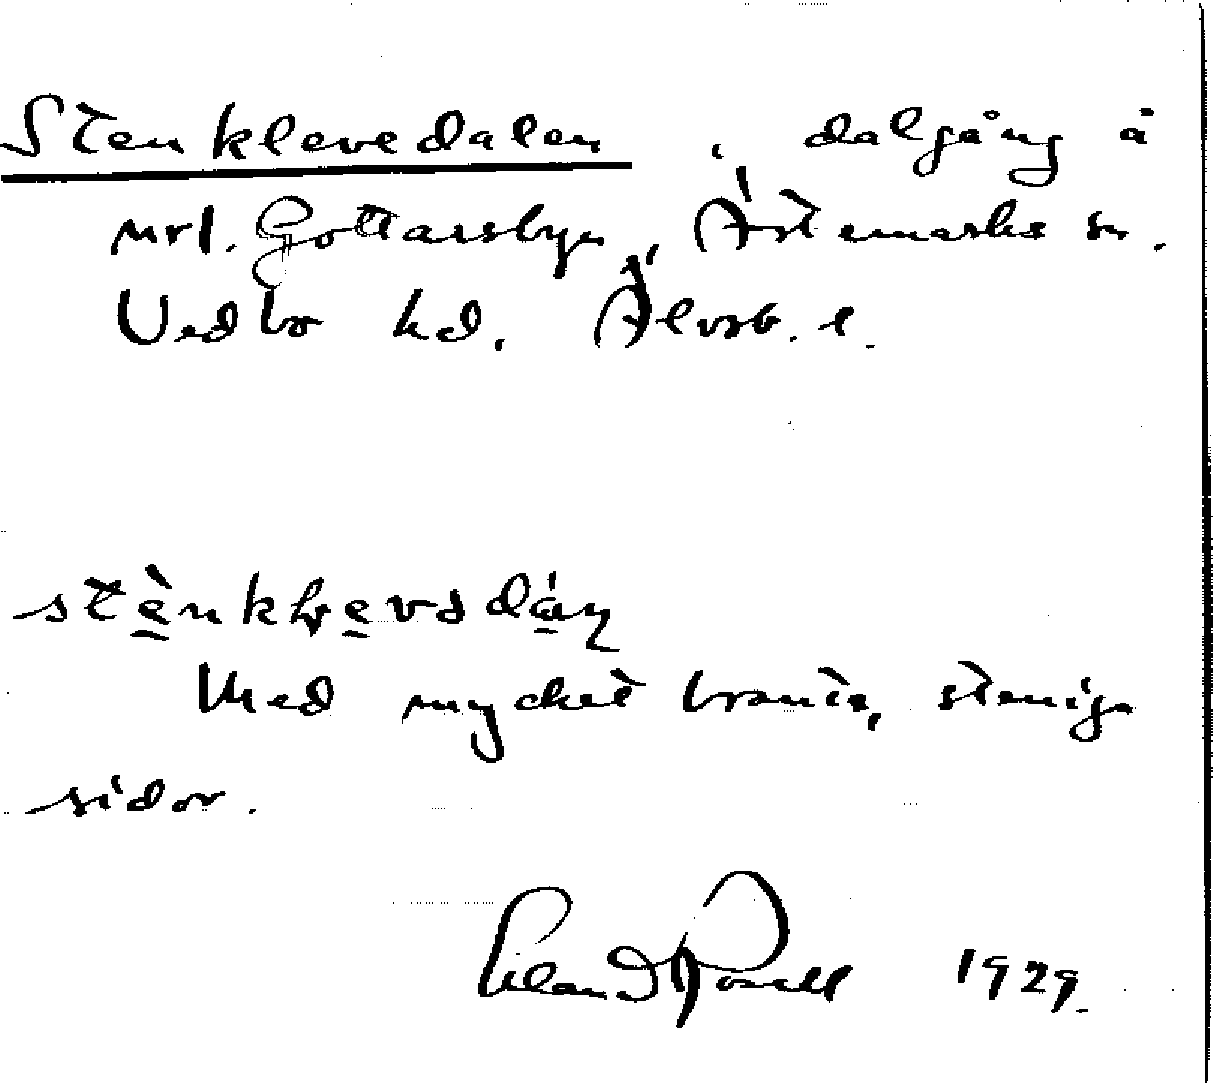 Stenklevedalen, dalgång å
mrl. Gottarsbyn, Ärtemarks sn.
Vedbo hd, Älvsb. l.
Med mycket branta, steniga
sidor.
Erland Rosell 1929.